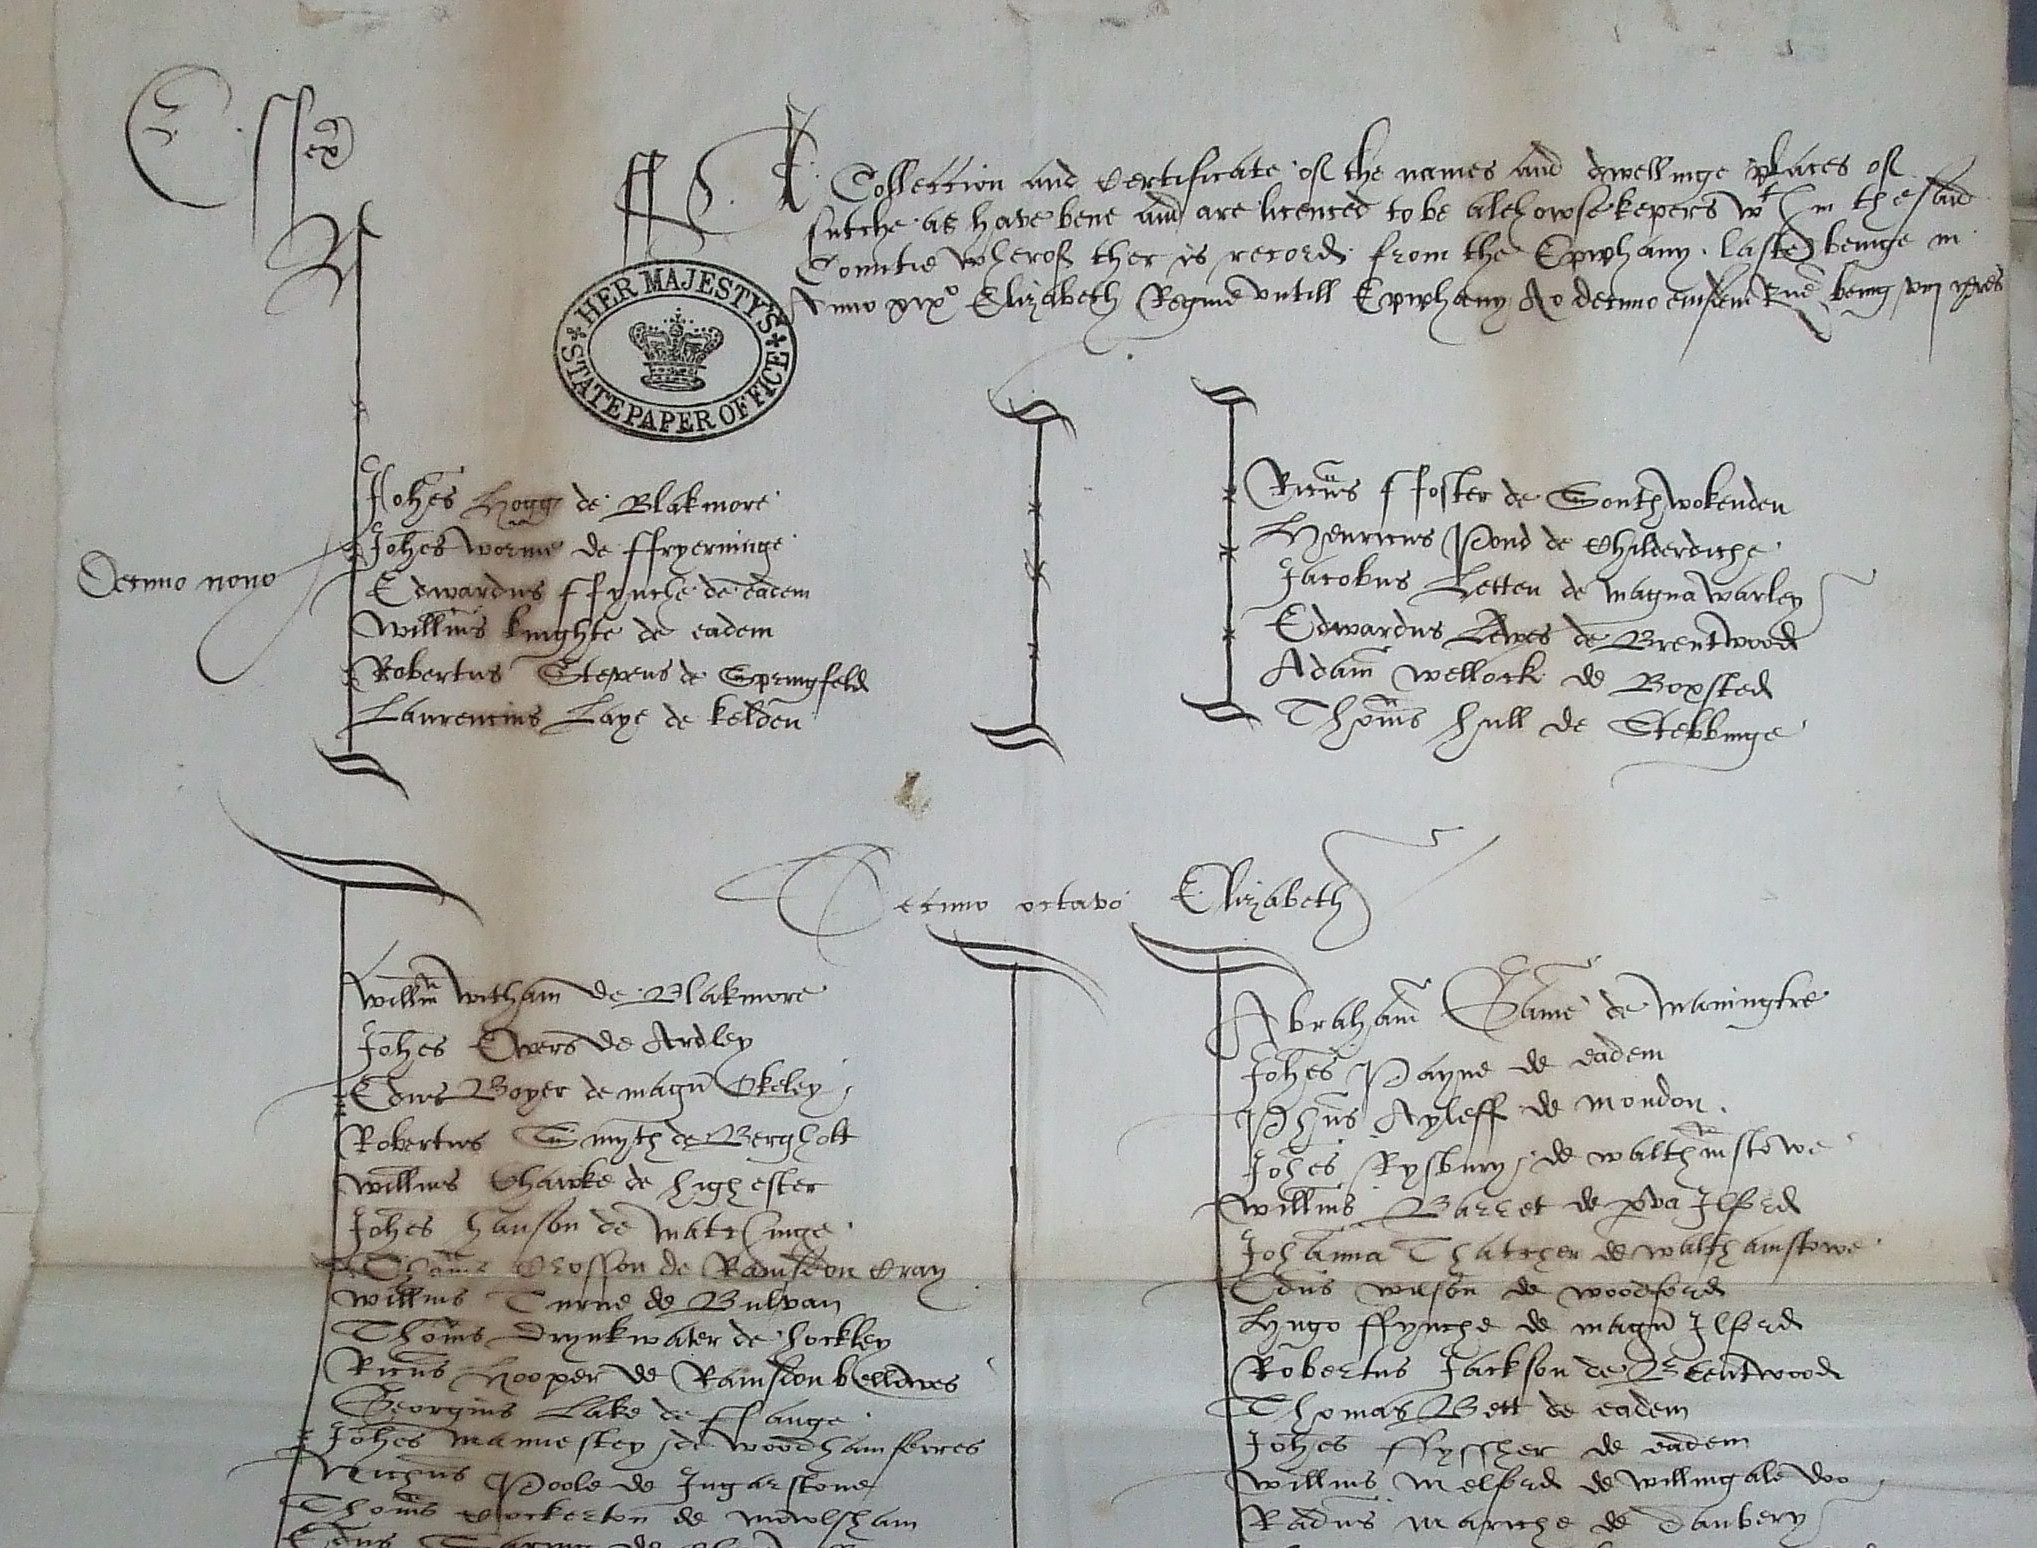 Essex
ss A Collection and Certificate of the names and dwellinge places of
sutche as have bene and are licenced to be alehowsekepers wth in the said
Countie wherof ther is record from the Epiphany laste beinge in
Anno xixo Elizabeth Regine untill Epiphany Ao decimo eiusdem Rne being viij yeres
HER MAJESTY'S STATE PAPER OFFICE
Decimo nono
Johes Hogg de Blakmore
Johes worme de ffryerninge
Edwardus ffynche de eadem
Willms knighte de eadem
Robertus Stepens de Springfeld
Laurencius Laye de kelden
Ricus ffoster de Southwokenden
Henricus Pond de Childerdiche
Jacobus Letten de magna warley
Edwardus Lewes de Brentwood
Adam wellock de Boxsted
Thoms Hull de Stebbinge
Decimo octavo Elizabeth
Willm witham de Blakmore
Johes Ewers de Ardley
Edus Boyer de magn Okeley
Robertus Smyth de Bergholt
willms Chawke de highester
Johes hanson de matchinge
Thoms Crosson de Ramsdon Cray
willms Turne de Bulvan
Thoms Drynkwater de hockley
Ricus Hooper de Ramsdon bellowes
Georgius Lake de ffange
Johes mannestey de woodhamferres
Nichus Poole de Ingarstone
Thoms Cockerton de mowlsham
Abraham Game de maningtre
Johes Payne de eadem
Phus Ayleff de mondon
Johes Rysbury de walthmstowe
willms Barret de pva Ilford
Johanna Thatcher de walthamstowe
Edus wilson de woodford
Hugo ffynche de magn Ilford
Robertus Jackson de Brentwood
Thomas Bett de eadem
Johes ffyscher de eadem
willms melford de willingale doo
Radus mariche de danbery